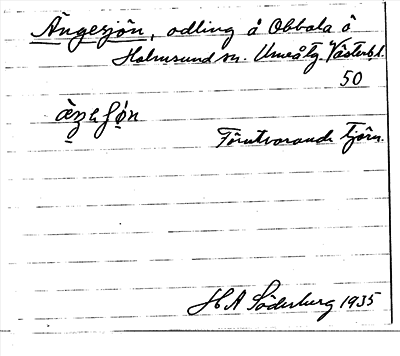 Ängesjön, odling å Obbola ö
Holmsund sn. Umeå tg. Västerb.l.
50
Förutvarande tjärn.
H A Söderburg 1935